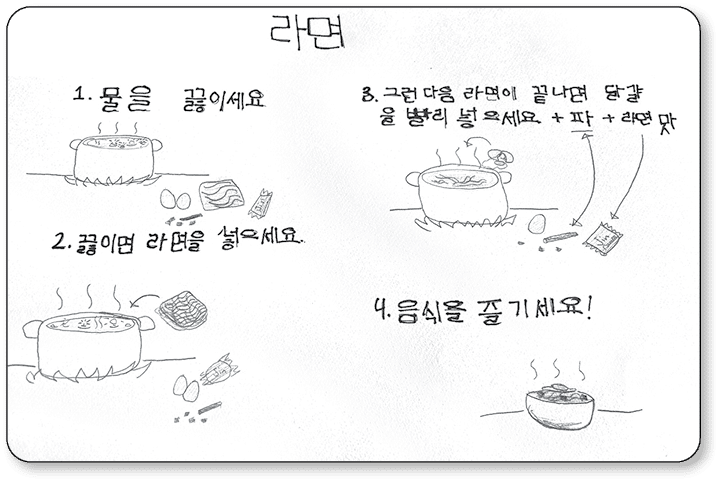 라면
1. 물을 끓이세요
2. 끓이면 라면을 넣으세요.
3. 그런 다음 라면이 끝나면 달걀
을 빨리 넣으세요 + 파 + 라면 맛
4. 음식을 즐기세요!